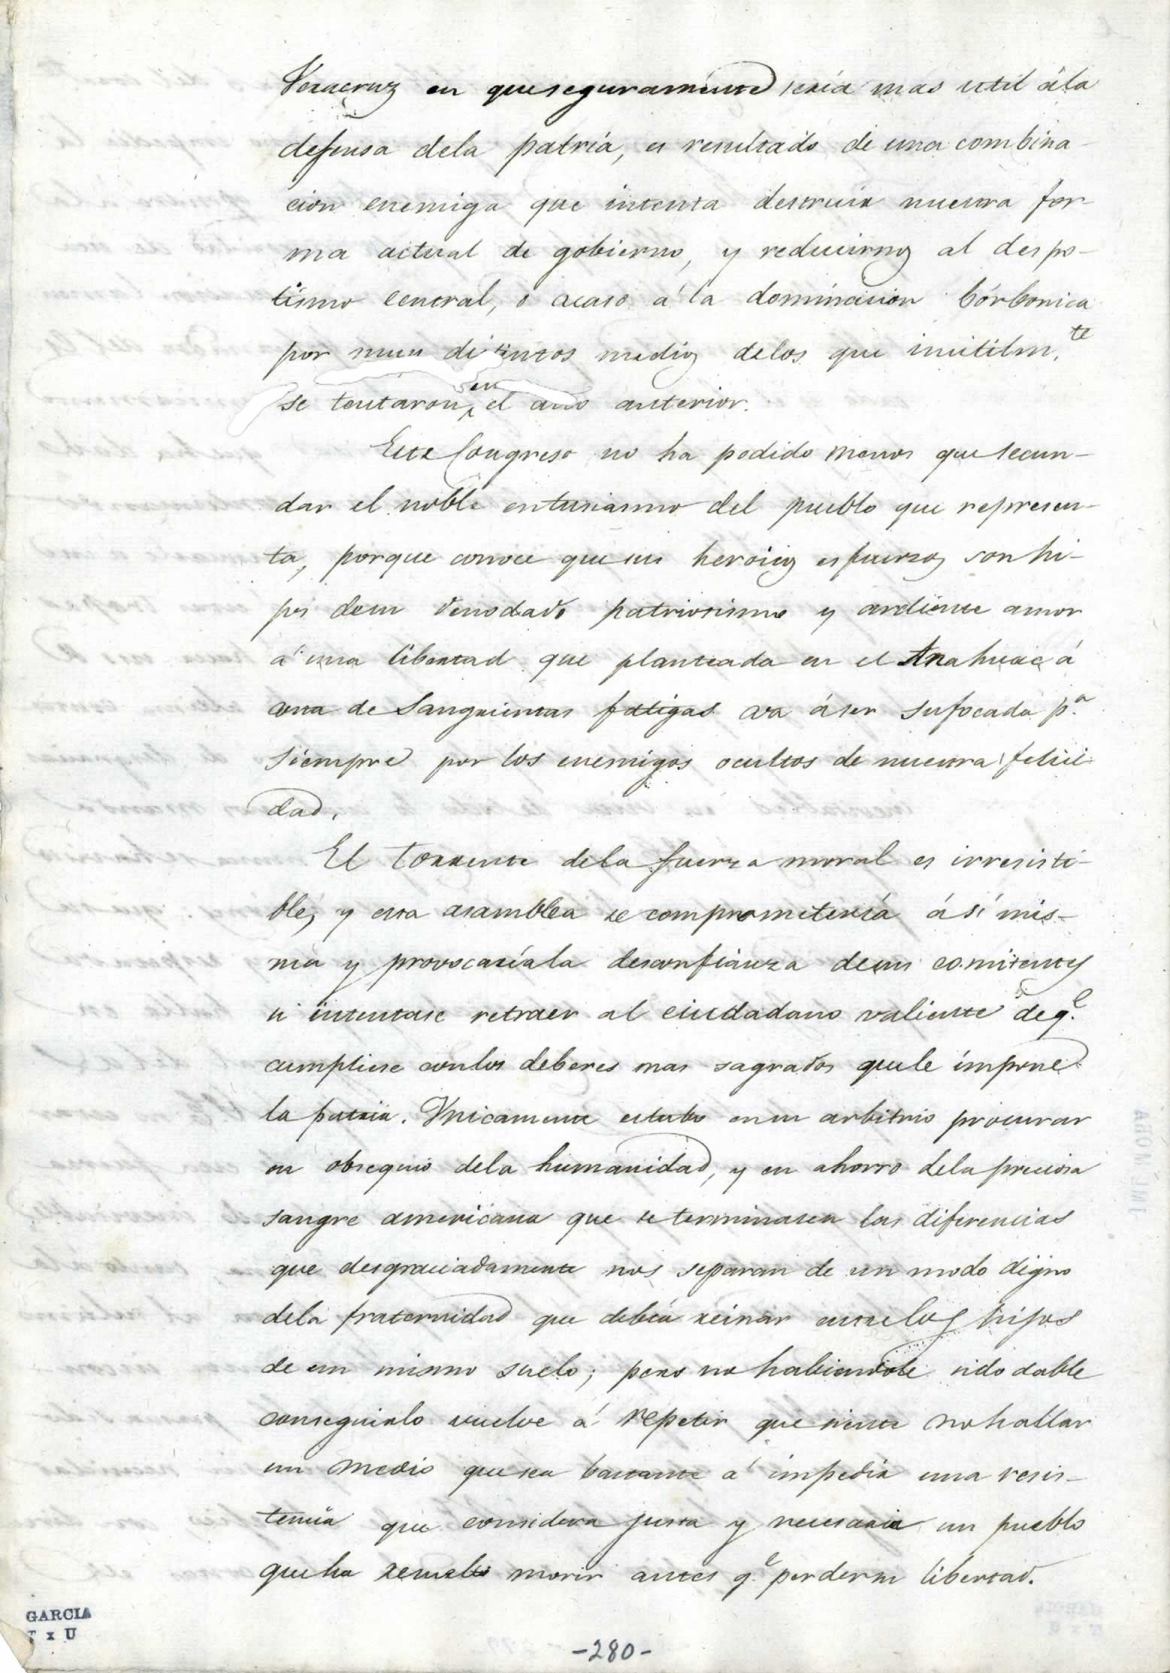 Veracruz en que seguramente sería mas util ála
defensa dela patria, es resultado de una combina-
cion enemiga que intenta destruir nuestra for-
ma actual de gobierno, y reducirnos al despo-
tismo central, o acaso á la dominacion borbonica
por muy distintos medios delos que inutilm.te
se tentaron en el año anterior.
Este Congreso no ha podido menos que secun-
dar el noble entusiasmo del pueblo que represen-
ta, porque conoce que sus heroicos esfuerzos son hi-
jos desu denodado patriotismo y ardiente amor
á una libertad que planteada en el Anahuac á
una de sangrientas fatigas va áser sufocada p.a
siempre por los enemigos ocultos de nuestra felici-
dad.
El torrente dela fuerza moral es irresisti-
ble, y esta asamblea se comprometería á sí mis-
ma y provocaría la desconfianza desus comitentes
si intentase retraer al ciudadano valiente deq.e
cumpliese conlos deberes mas sagrados quele impone
la patria. Unicamente estubo ensu arbitrio procurar
en obsequio dela humanidad, y en ahorro dela preciosa
sangre americana que se terminasen las diferencias
que desgraciadamente nos separan de un modo digno
dela fraternidad que debia reinar entre los hijos
de un mismo suelo; pero no habiendole sido dable
conseguirlo vuelve á repetir que siente no hallar
un medio que sea bastante á impedir una resis-
tencia que considera justa y necesaria un pueblo
que ha resuelto morir antes q.e perder su libertad.
GARCIA
-280-